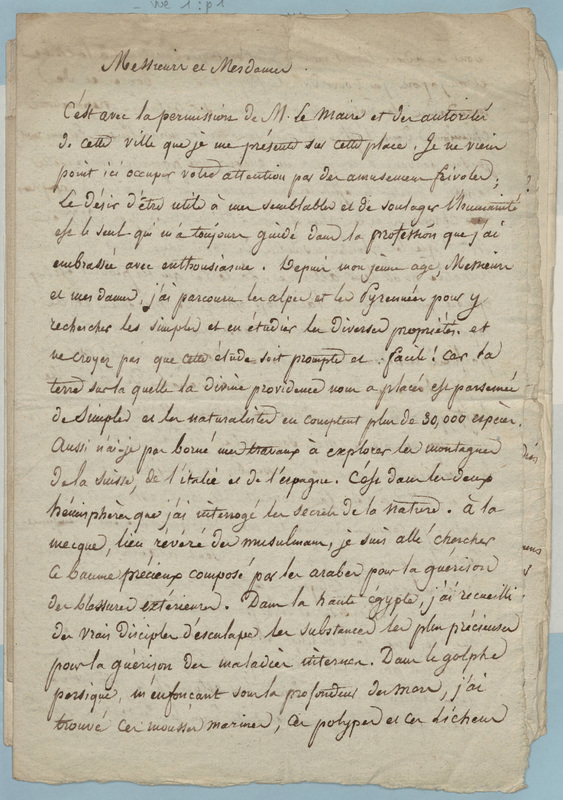 We 1:p1
Messieurs et Mesdames.
C'est avec la permission de M. le Maire et des autorités
de cette ville que je me présente sur cette place. Je ne viens
point ici occuper votre attention par des amusemens frivoles;
Le désir d'être utile à mes semblables et de soulager l'humanité
est le seul qui m'a toujours guidé dans la profession que j'ai
embrassée avec enthousiasme. Depuis mon jeune age, Messieurs
et mes dames, j'ai parcouru les alpes et les Pyrennées pour y
rechercher les simples et en étudier les diverses propriétés. et
ne croyez pas que cette étude soit prompte et facile! Car la
terre sur la quelle la divine providence nous a placés est parsemée
de Simples et les naturalistes en comptent plus de 30,000 espèces.
Aussi n'ai-je pas borné mes travaux à explorer les montagnes
de la suisse, de l'italie et de l'espagne. C'est dans les deux
hémisphères que j'ai interrogé les secrets de la nature. à la
mecque, lieu revéré des musulmans, je suis allé chercher
Ce baume précieux composé par les arabes pour la guérison
des blessures extérieures. Dans la haute egypte, j'ai recueilli
des vrais disciples d'esculape les substances les plus précieuses
pour la guérison des maladies internes. Dans le golphe
persique, m'enfonçant sous la profondeur des mers, j'ai
trouvé ces mousses marines, ces polypes et ces lichens